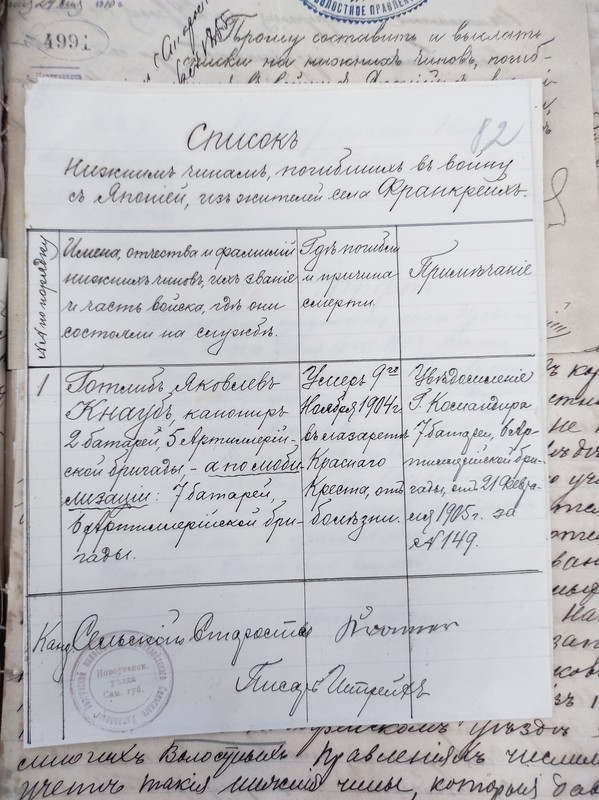 ВОЛОСТНОЕ ПРАВЛЕН
4991
Прошу составить и выслать
списки на нижнихъ чиновъ, погиб-
82
Списокъ
Нижнимъ чинамъ, погибшихъ въ войну
съ Японіей, изъ жителей села Франкрейхъ.
№№ по порядку
Имена, отчества и фамилiи
нижнихъ чиновъ, ихъ званiе
и часть войска, гдѣ они
состояли на службѣ.
Гдѣ погибли
и причина
смерти.
Примѣчанiе
1
Готлибъ Яковлевъ
Кнаубъ, канониръ
2 батареи, 5 Артиллерiй-
ской бригады, - а по моби-
лизацiи: 7 батареи,
6 Артиллерiйской бри-
гады.
Умеръ 9го
Ноября 1904 г.
въ лазаретѣ
Краснаго
Креста, отъ
болѣзни.
Увѣдомленiе
Г. Командира
7 батареи, 6 Ар-
тиллерiйской бри-
гады, отъ 21 Февра-
ля 1905 г. за
№ 149.
Канд. Сельскаго Старосты
Новоузенск.
уѣзда
Сам. губ.
Писарь
уѣздѣ
многихъ Волостныхъ Правленiяхъ
учетѣ такiя нижнiе чины, которыя